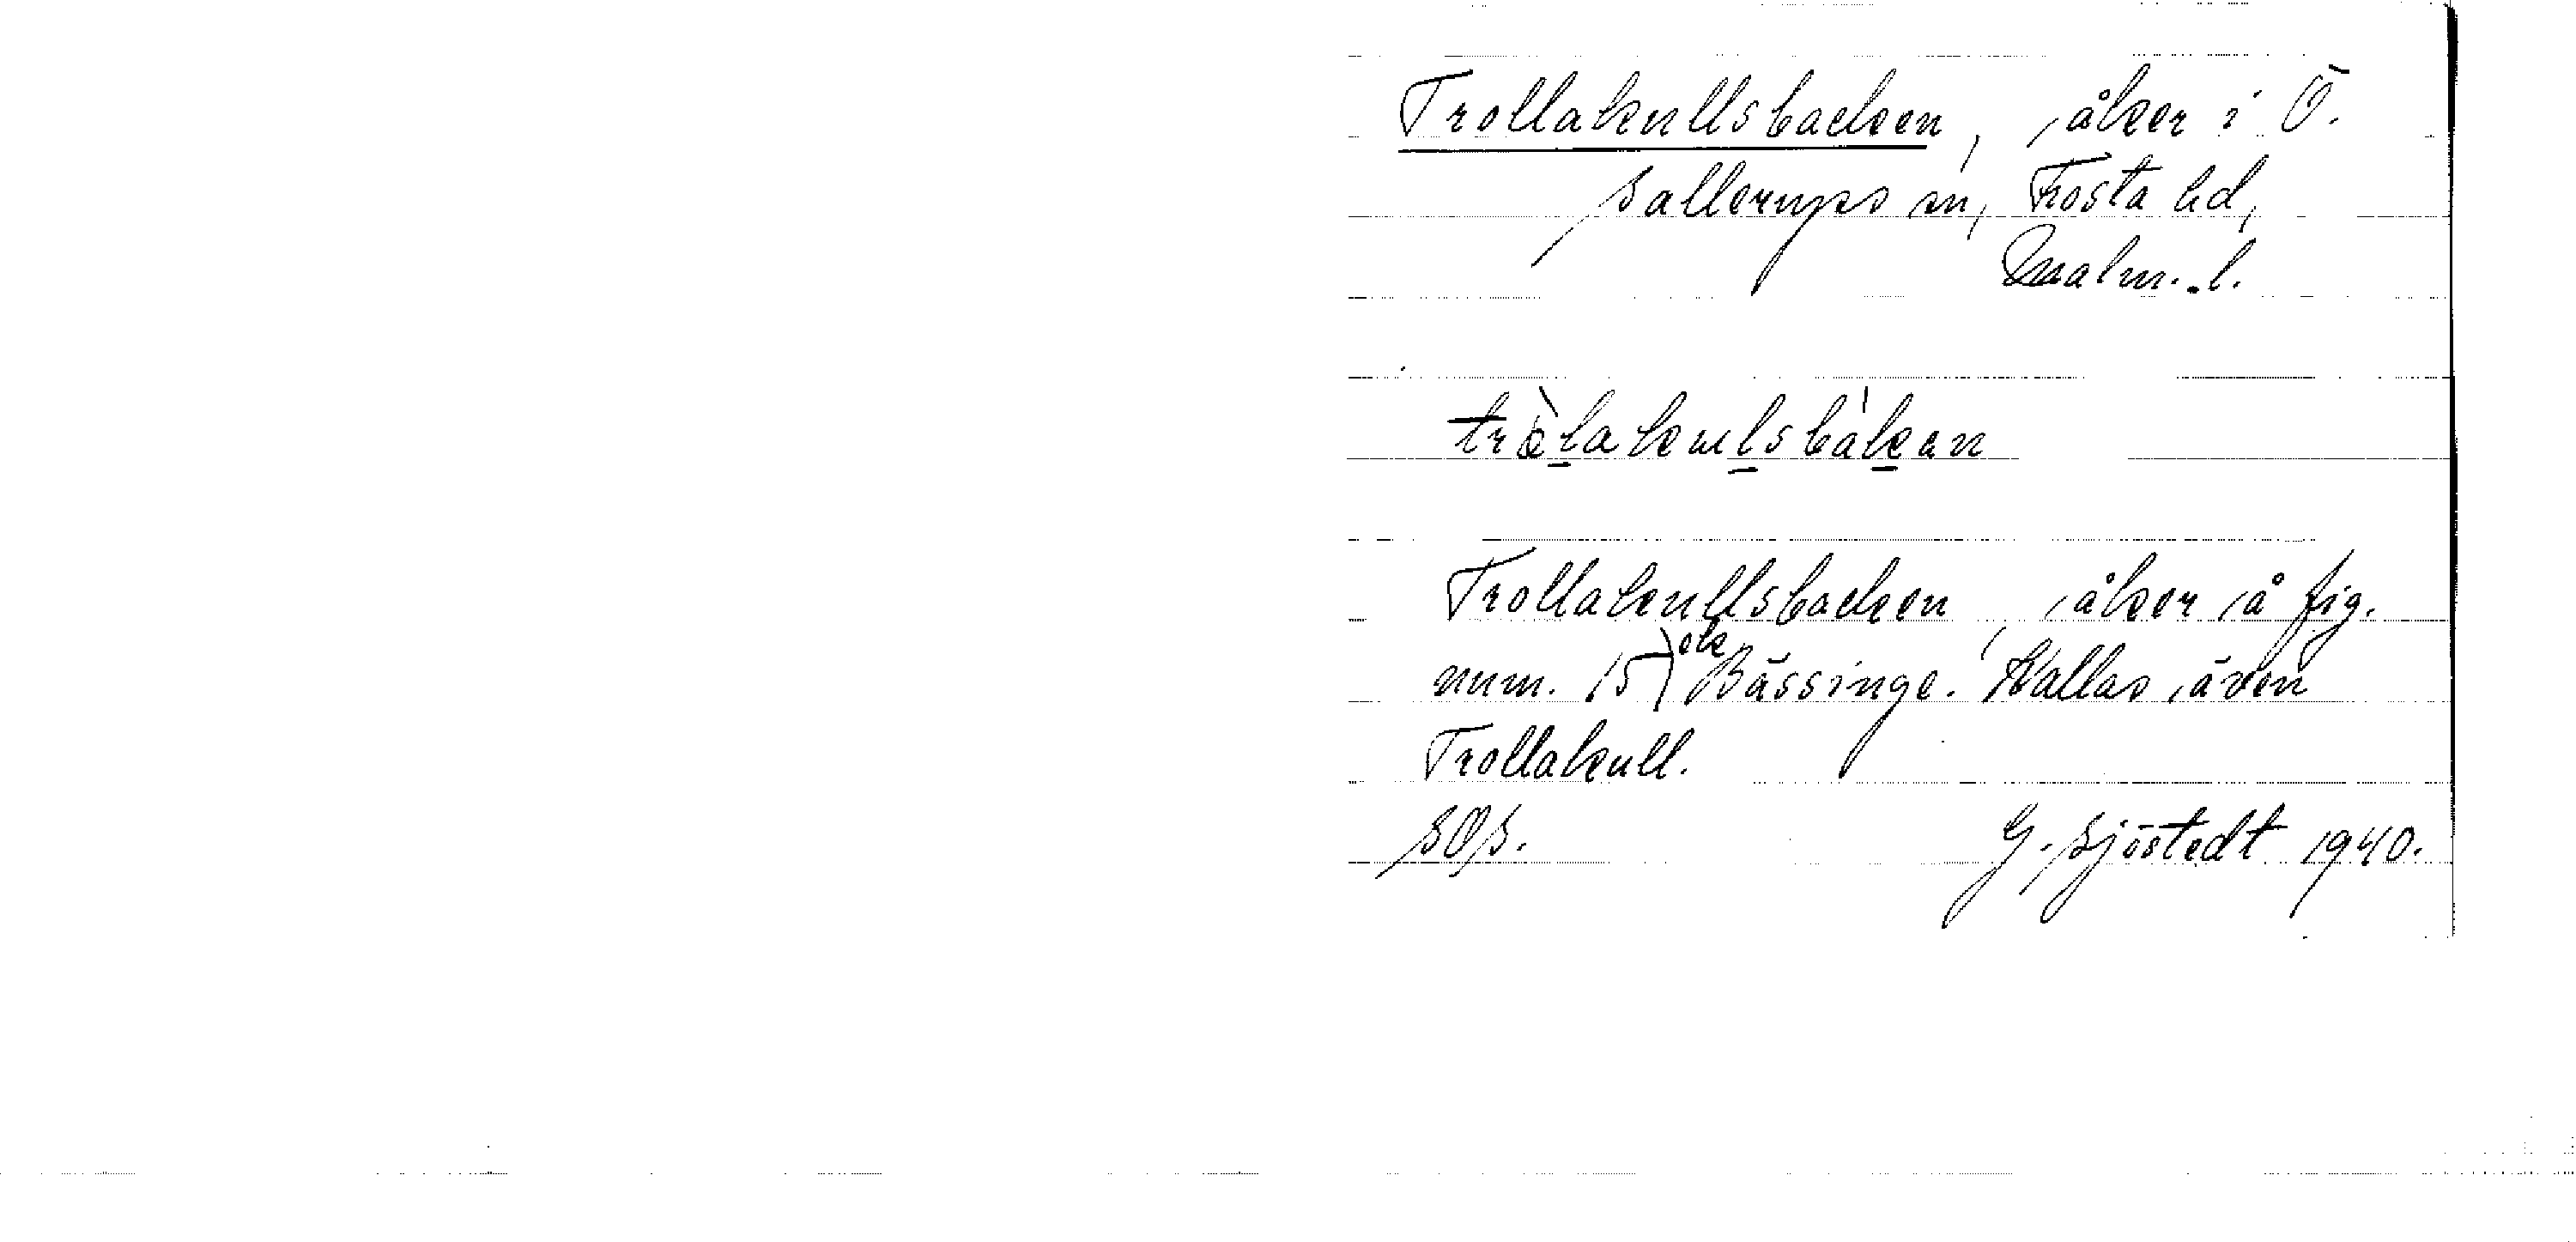 Trollakullsbacken, åker i Ö.
Sallerups sn, Frosta hd,
Malm. l.
tròlakulsbàkan
Trollakullsbacken, åker å fig.
num. 157 Bässinge. Kallas även
Trollakull.
SOS. G. Sjöstedt 1940.